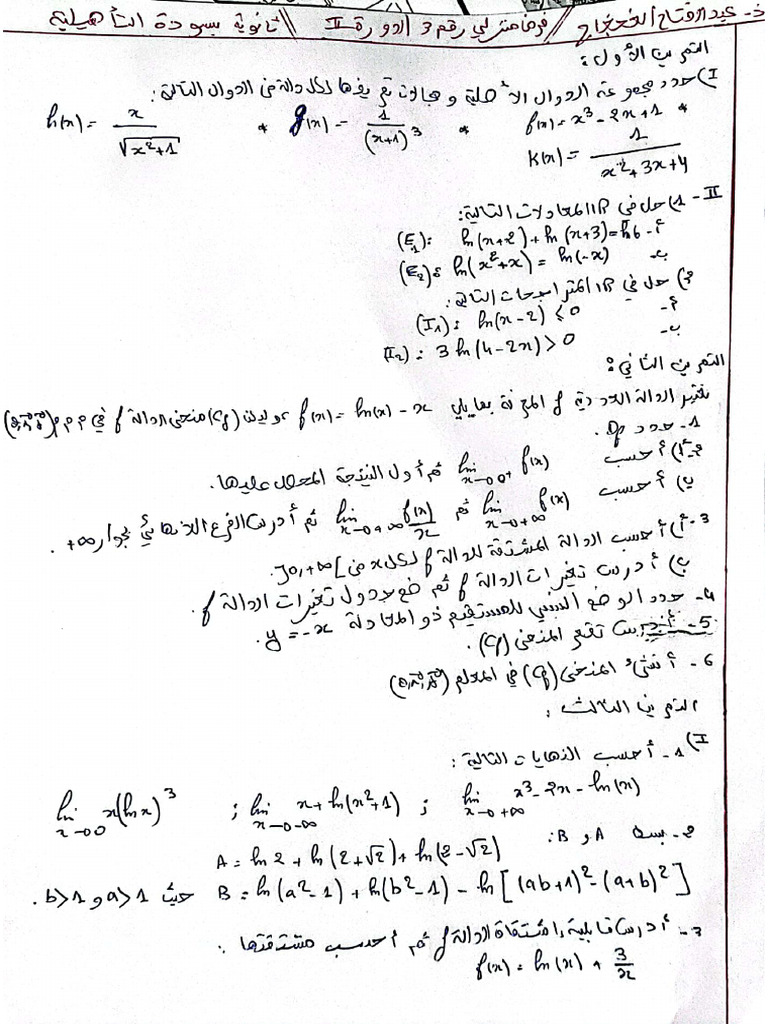 ذ- عبد الفتاح الفجراج // فرض منزلي رقم 3 الدورة II // ثانوية بسودة التأهيلية
التمرين الأول:
I) حدد مجموعة الدوال الأصلية و مجالات تعريفها لكل دالة من الدوال التالية:
f(x) = x³ - 2x + 1 * g(x) = 1/(x+1)³ * h(x) = x/√(x²+1)
K(x) = 1/(x²+3x+4)
II - 1) حل في IR المعادلات التالية:
أ- (E₁): ln(x+2) + ln(x+3) = ln6
ب- (E₂): ln(x²+x) = ln(-x)
2) حل في IR المتراجحات التالية:
أ- (I₁): ln(x-2) ≤ 0
ب- (I₂): 3 ln(4-2x) > 0
التمرين الثاني:
نعتبر الدالة العددية f المعرفة بمايلي f(x) = ln(x) - x وليكن (Cf) منحنى الدالة f في م م م (o,i,j)
1- حدد Df.
2- أ) أحسب lim x→0⁺ f(x) ثم أول النتيجة المحصل عليها.
ب) أحسب lim x→+∞ f(x) ثم lim x→+∞ f(x)/x ثم أدرس الفرع اللانهائي بجوار +∞.
3- أ) أحسب الدالة المشتقة للدالة f لكل x من ]0,+∞[.
ب) أدرس تغيرات الدالة f ثم ضع جدول تغيرات الدالة f.
4- حدد الوضع النسبي للمستقيم ذو المعادلة y = -x.
5- أدرس تقعر المنحنى (Cf).
6- أنشئ المنحنى (Cf) في المعلم (o,i,j)
التمرين الثالث:
I) 1- أحسب النهايات التالية:
lim x→+∞ x³ - 2x - ln(x) ; lim x→-∞ x + ln(x²+1) ; lim x→0 x(ln x)³
2- بسط A و B:
A = ln2 + ln(2+√2) + ln(2-√2)
B = ln(a²-1) + ln(b²-1) - ln[(ab+1)² - (a+b)²] حيث a>1 و b>1.
3- أدرس قابلية اشتقاق الدالة f ثم أحسب مشتقتها:
f(x) = ln(x) + 3/x